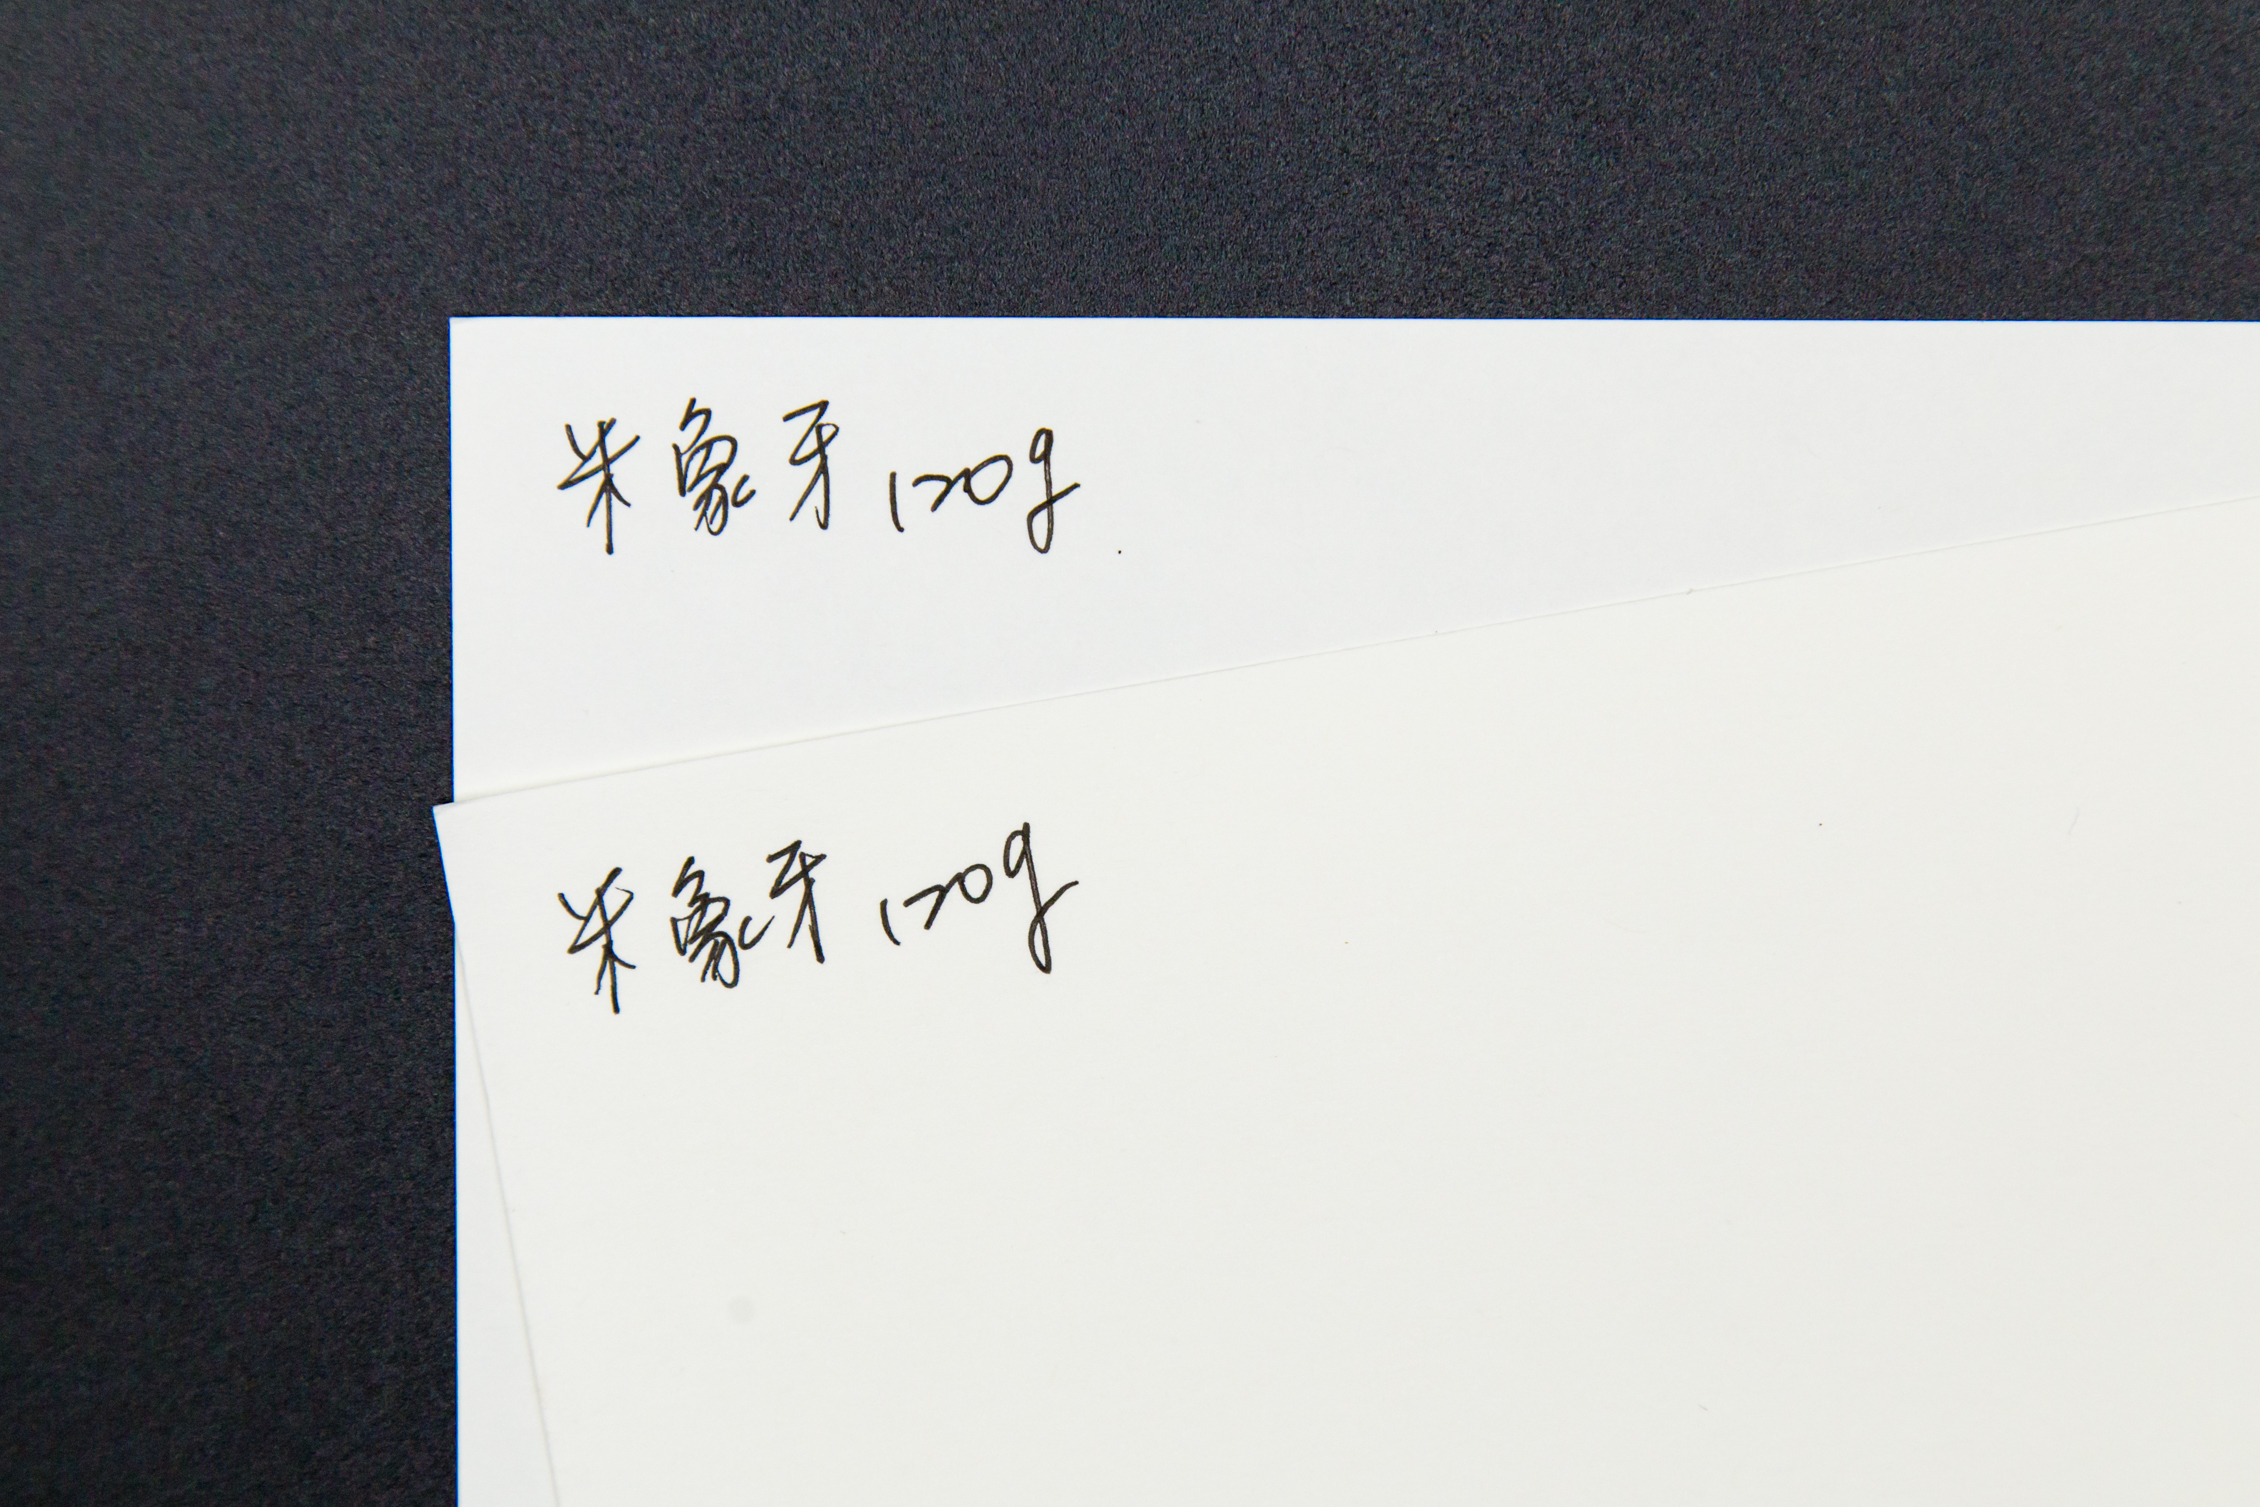 米象牙 120g
米象牙 120g